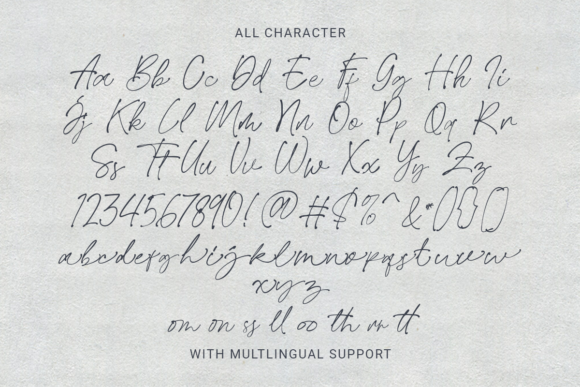 ALL CHARACTER
Aa Bb Cc Dd Ee Ff Gg Hh Ii
Jj Kk Ll Mm Nn Oo Pp Qq Rr
Ss Tt Uu Vv Ww Xx Yy Zz
1234567890!@#$%^&*(){}[]
abcdefghijklmnopqrstuvw
xyz
om on ss ll oo th rr tt
WITH MULTLINGUAL SUPPORT